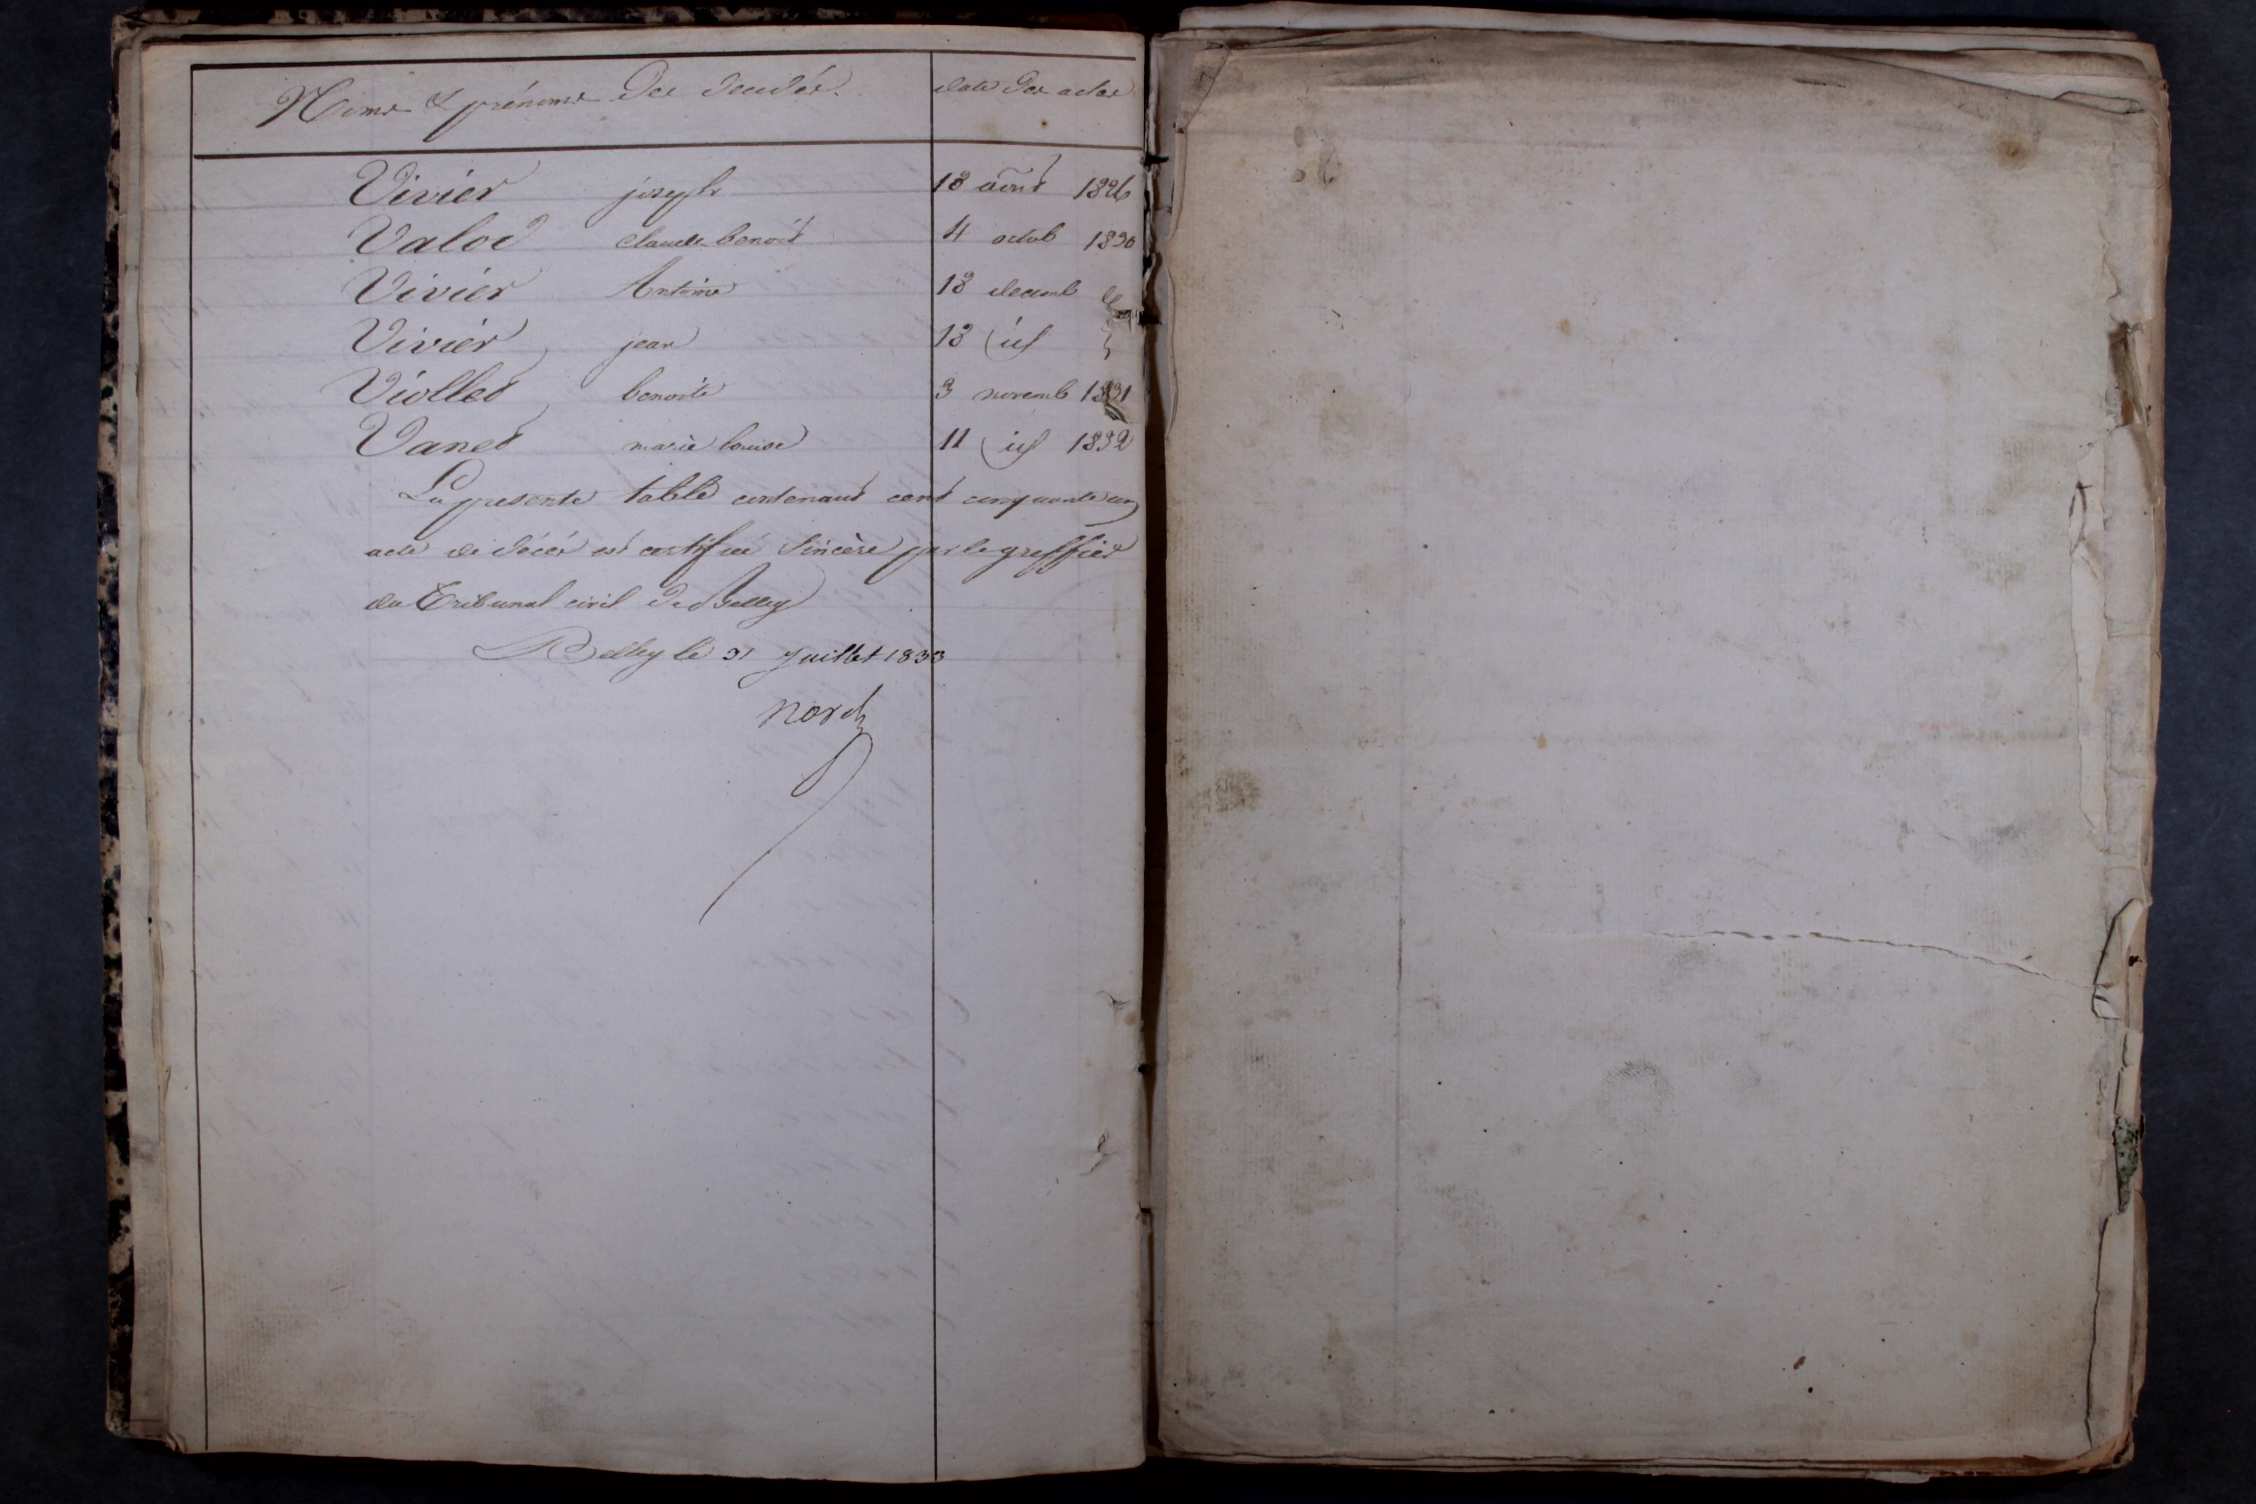 Noms & prénoms des décédés. date des actes
Vivier joseph 18 août 1826
Valod claude benoît 4 octob 1830
Vivier Antoine 18 décemb
Vivier jean 18 id
Viollet benoîte 3 novemb 1831
Vanet marie louise 11 id 1832
La presente table contenant cent cinquante un
acte de décès est certifié sincère par le greffier
du Tribunal civil de Belley
Belley le 31 Juillet 1833